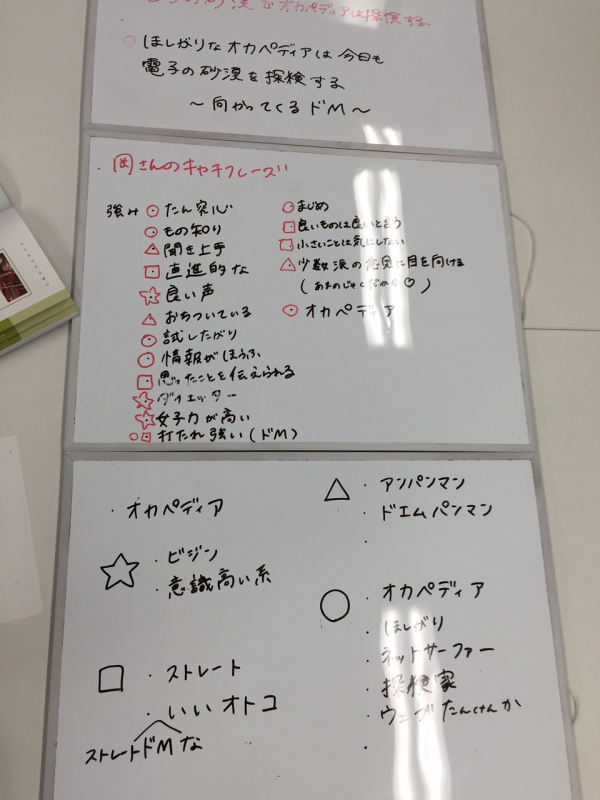 の砂漠でオカペディアは探検する
○ ほしがりなオカペディアは今日も
電子の砂漠を探検する
～向かってくるドM～
・岡さんのキャチフレーズ
強み ○ たん究心
○ もの知り
△ 聞き上手
□ 直進的な
☆ 良い声
△ おちついている
○ 試したがり
○ 情報がほうふ
□ 思ったことを伝えられる
☆ ダイエッター
☆ 女子力が高い
○□ 打たれ強い(ドM)
○ まじめ
□ 良いものは良いと言う
□ 小さいことは気にしない
△ 少数派の意見に目を向ける
(あまのじゃくだから♡)
○ オカペディア
・オカペディア
☆ ・ビジン
・意識高い系
□ ・ストレート
・いいオトコ
ストレートドMな
△ ・アンパンマン
・ドエムパンマン
・
○ ・オカペディア
・ほしがり
・ネットサーファー
・探検家
・ウェブたんけんか
・